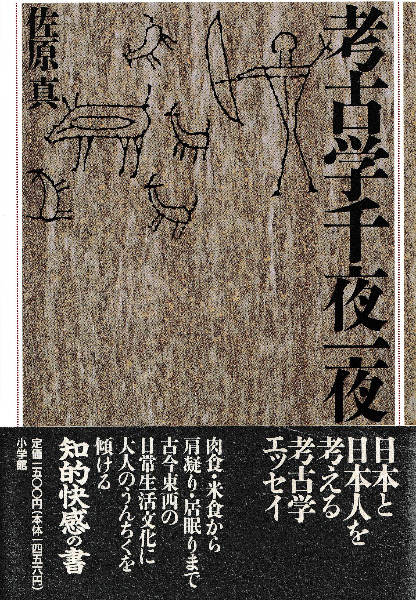 考古学千夜一夜
佐原 真
日本と
日本人を
考える
考古学
エッセイ
肉食・米食から
肩凝り・居眠りまで
古今東西の
日常生活文化に
大人のうんちくを
傾ける
知的快感の書
定価一五〇〇円(本体一四五六円)
小学館